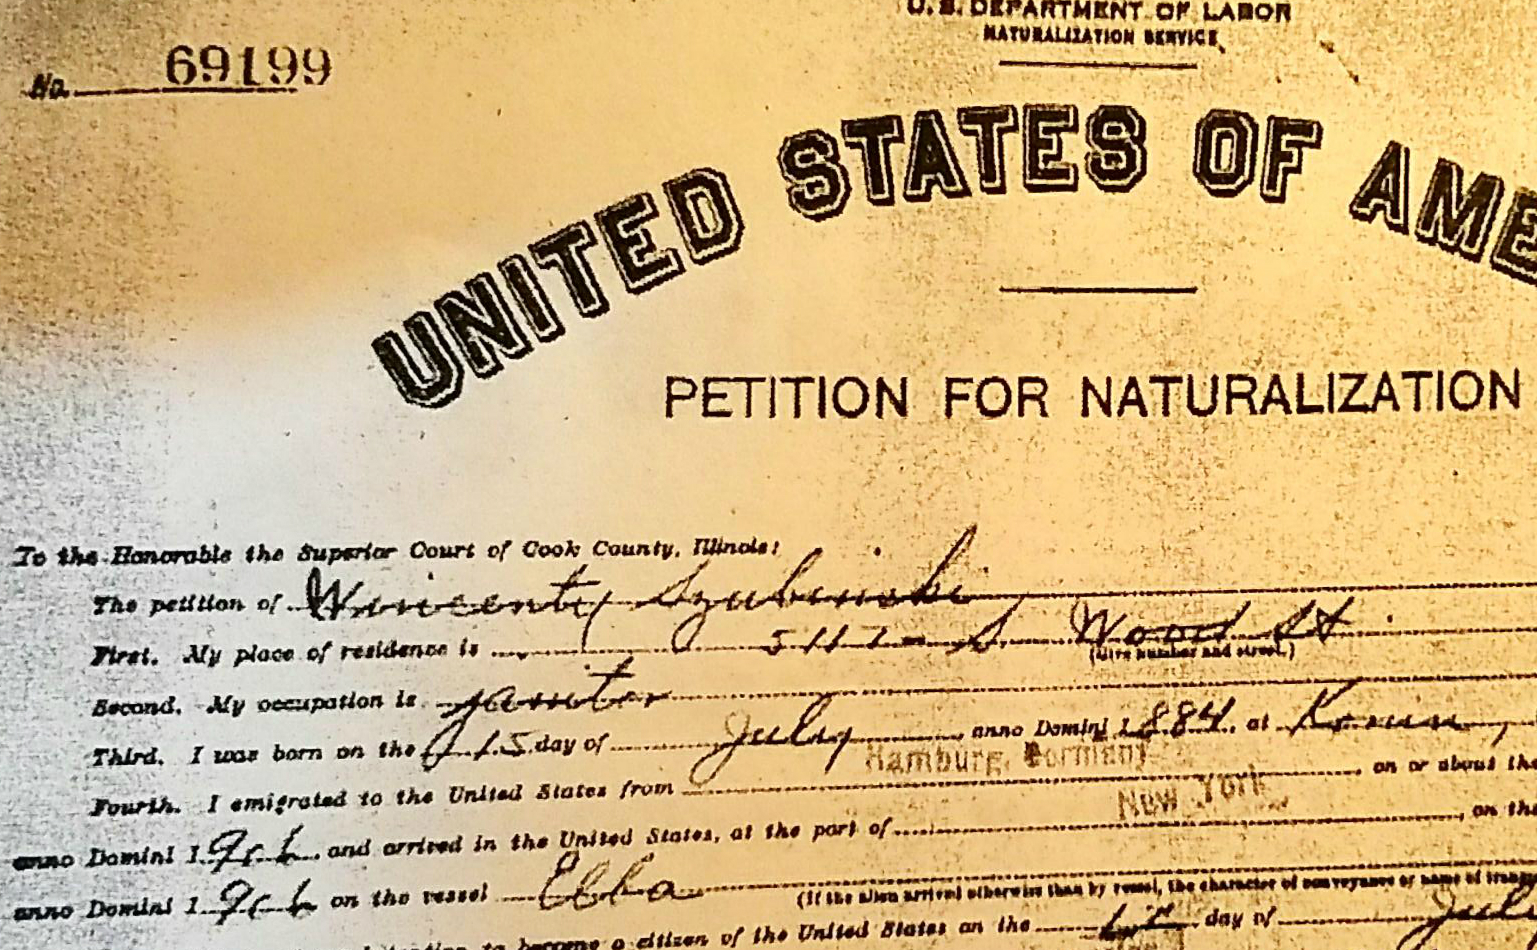 U. S. DEPARTMENT OF LABOR
NATURALIZATION SERVICE
No. 69199
UNITED STATES OF AME
PETITION FOR NATURALIZATION
To the Honorable the Superior Court of Cook County, Illinois:
The petition of Wincenty Szubinski
First. My place of residence is S. Wood St
(Give number and street.)
Second. My occupation is janitor
Third. I was born on the 15 day of July, anno Domini 1884, at
Hamburg, Germany
Fourth. I emigrated to the United States from on or about the
New York
anno Domini 1 and arrived in the United States, at the port of on the
anno Domini 1 on the vessel
(If the alien arrived otherwise than by vessel, the character of conveyance or name of
to become a citizen of the United States on the day of